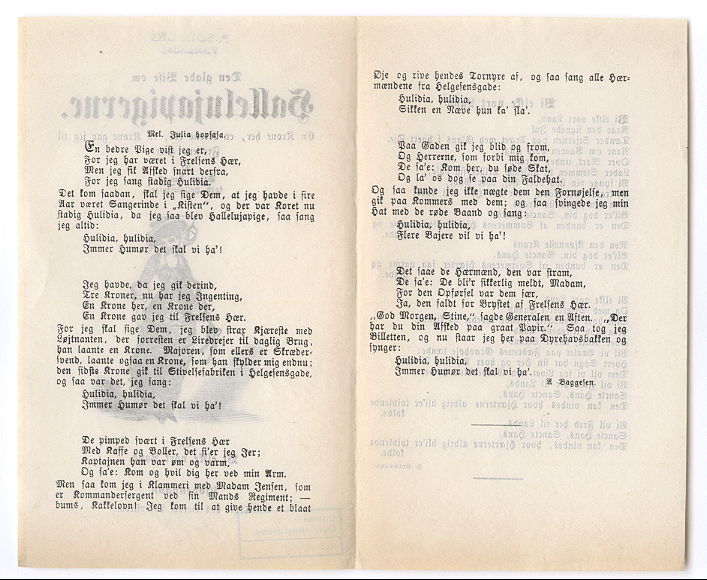 Mel. Julia hopsasa.
En bedre Pige vist jeg er,
For jeg har været i Frelsens Hær,
Men jeg fik Afsked snart derfra,
For jeg sang stadig Hulidia.
Det kom saadan, skal jeg sige Dem, at jeg havde i fire
Aar været Sangerinde i „Kisten“, og der var Koret nu
stadig Hulidia, da jeg saa blev Hallelujapige, saa sang
jeg altid:
Hulidia, hulidia,
Immer Humør det skal vi ha'!
Jeg havde, da jeg gik derind,
Tre Kroner, nu har jeg Ingenting,
En Krone her, en Krone der,
En Krone gav jeg til Frelsens Hær.
For jeg skal sige Dem, jeg blev strax Kjæreste med
Løjtnanten, der forresten er Liredrejer til daglig Brug,
han laante en Krone. Majoren, som ellers er Skræder-
svend, laante ogsaa en Krone, som han skylder mig endnu;
den sidste Krone gik til Stivelsefabriken i Helgesensgade,
og saa var det, jeg sang:
Hulidia, hulidia,
Immer Humør det skal vi ha'!
De pimped svært i Frelsens Hær
Med Kaffe og Boller, det si'er jeg Jer;
Kaptajnen han var øm og varm,
Og sa'e: Kom og hvil dig her ved min Arm.
Men saa kom jeg i Klammeri med Madam Jensen, som
er Kommandersergent ved sin Mands Regiment; —
bums, Kakkelovn! Jeg kom til at give hende et blaat
Øje og rive hendes Tornyre af, og saa sang alle Hær-
mændene fra Helgesensgade:
Hulidia, hulidia,
Sikken en Næve hun ka' sla'.
Paa Gaden gik jeg blid og from,
Og Herrerne, som forbi mig kom,
De sa'e: Kom her, du søde Skat,
Og la' os dog se paa din Faldehat.
Og saa kunde jeg ikke nægte dem den Fornøjelse, men
gik paa Kommers med dem; og saa svingede jeg min
Hat med de røde Baand og sang:
Hulidia, hulidia,
Flere Bajere vil vi ha'!
Det saae de Hærmænd, den var stram,
De sa'e: De bli'r sikkerlig meldt, Madam,
For den Opførsel var dem sær,
Ja, den faldt for Brystet af Frelsens Hær.
„God Morgen, Stine,“ sagde Generalen en Aften. „Der
har du din Afsked paa graat Papir.“ Saa tog jeg
Billetten, og nu staar jeg her paa Dyrehavsbakken og
synger:
Hulidia, hulidia,
Immer Humør det skal vi ha'.
A Baggesen.